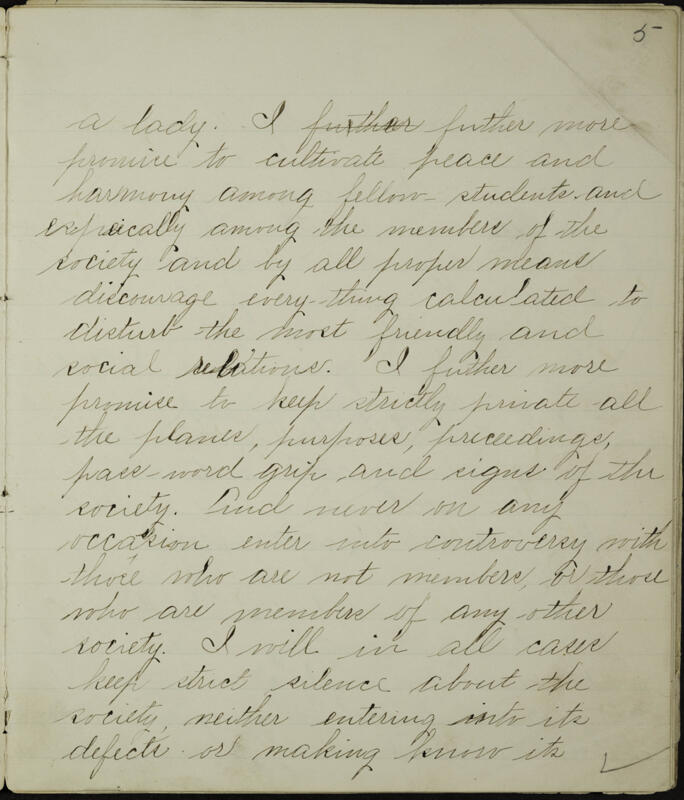 5
a lady. I further futher more
promise to cultivate peace and
harmony among fellow-students and
espicically among the members of the
society and by all proper means
discourage every-thing calculated to
disturb the most friendly and
social relations. I futher more
promise to keep strictly private all
the planes, purposes, preceedings,
pass-word grip and signs of the
society. And never on any
occasion enter into controversy with
those who are not members, or those
who are members of any other
society. I will in all cases
keep strict silence about the
society, neither entering into its
defects or making know its